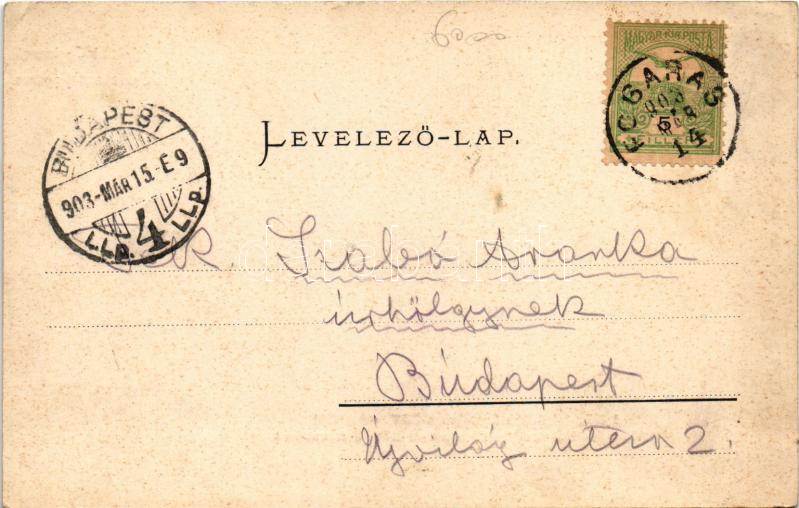 6000
MAGYAR KIR. POSTA
5
FOGARAS
903
MÁR
14
BUDAPEST
903-MÁR 15.-E 9
4
LLP. LLP.
LEVELEZŐ-LAP.
Szabó Aranka
úrhölgynek
Budapest
Újvilág utcza 2.
darabanth